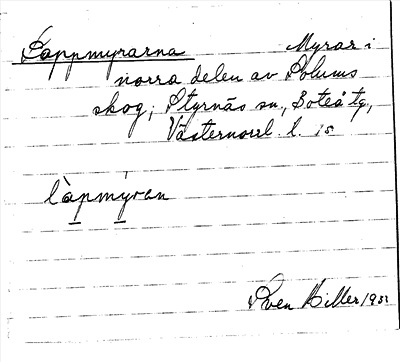 Lappmyrarna Myrar i
norra delen av Solums
skog, Styrnäs sn., Boteå tg,
Västernorrl. l.
làpmýran
Sven Hiller 1932